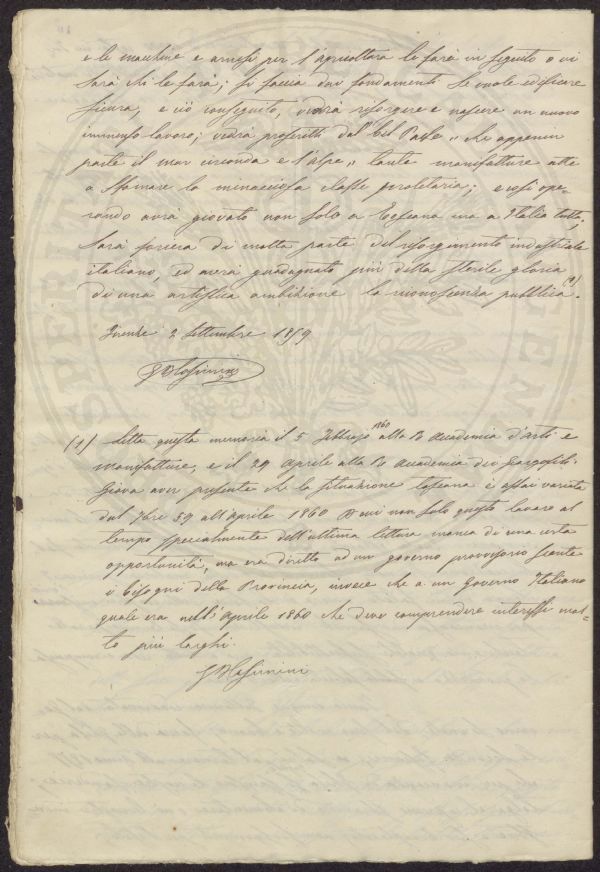 e le macchine e arnesi per l'agricoltura le farà in seguito o vi
sarà chi le farà; si faccia dai fondamenti se vuole edificare
sicura, e ciò conseguito, vedrà risorgere e nascere un nuovo
immenso lavoro; vedrà protetti dal bel Paese „ che appennin
parte il mar circonda e l'alpe „ tante manifatture atte
a sfamare la minacciosa classe proletaria; e così ope-
rando avrà giovato non solo a Toscana ma a Italia tutta;
sarà forriera di molta parte del risorgimento industriale
italiano, ed avrà guadagnato più della sterile gloria
di una artistica ambizione la riconoscenza pubblica. (1)
Firenze 2 Settembre 1859
(1) Letta questa memoria il 5 Febbrajo 1860 alla R Accademia d'arti e
manifatture, e il 29 Aprile alla R Accademia dei Georgofili.
Giova aver presente che la situazione toscana è assai variata
dal 7bre 59 all'Aprile 1860 e non solo questo lavoro al
tempo specialmente dell'ultima lettura manca di una certa
opportunità, ma era diretto ad un governo provvisorio
i bisogni della Provincia, invece che a un Governo Italiano
quale era nell'Aprile 1860 che deve comprendere interessi mol-
to più larghi.
SPERIT
TEM